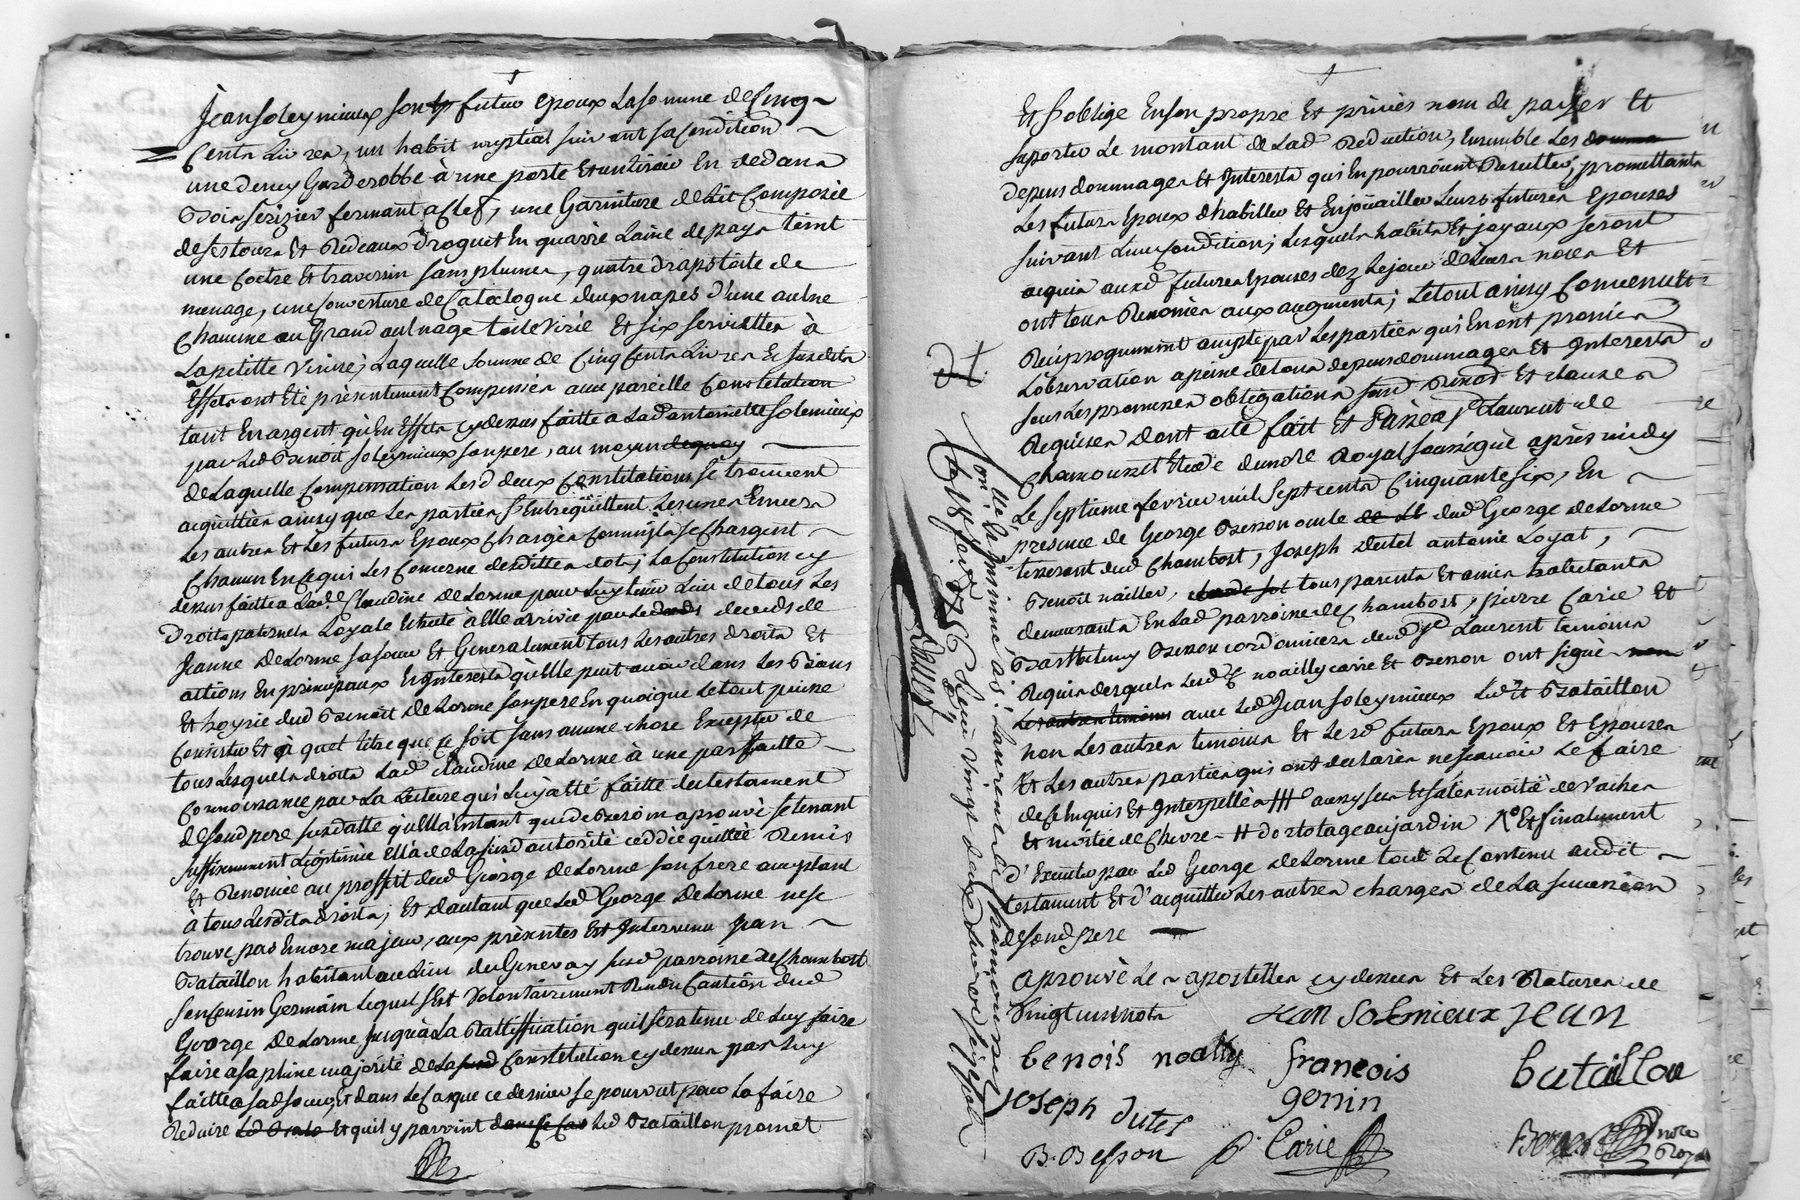 Jean Soleymieux son futur epoux la somme de Cinq
Cents Livres, un habit nuptial suivant sa Condition
une demy Garderobbe à une porte et un tiroir En dedans
Bois Serizier fermant a Clef, une Garniture de lit Composée
de ses tours Et Rideaux Droguet En quarré Laine de pays teint
une Coetre Et traversin sans plumes, quatre draps toile de
menage, une Couverture de Catalogne deux napes d'une aulne
Chacune au Grand aulnage toile Virée Et six serviettes à
La petitte Virure; Laquelle somme de Cinq Cents Livres Et susdits
Effets ont Eté présentement Compensés avec pareille Constitution
tant En argent qu'En Effets cy dessus faitte a Lad antoinette Solemieux
par Led Benoit Soleymieux son pere, au moyen dequoy
de Laquelle Compensation Lesd deux Constitutions se trouvent
acquittées ainsy que Les parties s'Entrequittent Les unes Envers
Les autres Et Les futurs Epoux Chargés Comme ils se Chargent
Chacun En Ce qui Les Concerne desdittes dots; La Constitution cy
dessus faitte a Lad Claudine Delorme pour Luy tenir Lieu de tous Les
Droits paternels Loyale Echute à Elle arrivée par Le deceds de
Jeanne Delorme sa soeur Et Generalement tous Les autres droits Et
actions En principaux Et Interests qu'Elle peut avoir dans Les Biens
Et hoyrie dud Benoit Delorme son pere En quoique Le tout puisse
Consister Et à quel titre que Ce soit sans aucune chose Excepter de
tous Lesquels droits Lad Claudine Delorme à une parfaitte
Connoissance par La Lecture qui Luy à Eté faitte du testament
de Sond pere susdatté qu'Ella Entant que de Besoin aprouvé se tenant
suffisamment Legitimée Ella de La susd autorité ceddé quitté Remis
Et Renoncé au proffit dud George Delorme son frere acceptant
à tous Lesdits droits; Et d'autant que Led George Delorme ne se
trouve pas Encore majeur, aux présentes Est Intervenu Jean
Bataillon habitant au Lieu du Genevay susd parroisse de Chambost
son Cousin Germain Lequel s'Est Volontairement Rendu Caution dud
George Delorme Jusqu'à La Rattiffication qu'il sera tenu de Luy faire
faire a sa pleine majorité de La susd Constitution cy dessus par Luy
faitte a sad soeur, Et dans Le Cas que ce dernier se pourvut pour La faire
Reduire Et qu'il y parvint Led Bataillon promet
Et s'oblige En son propre Et privés nom de payer Et
suporter Le montant de Lad Reduction, Ensemble Les
depens dommages Et Interests qui En pourroient Resulter; promettants
Les futurs Epoux d'habiller Et Enjoüailler Leurs futures Epouses
suivant Leur Condition; Lesquels habits Et joyaux seront
acquis auxd futures Epouses dez Le jour de Leurs noces Et
ont tous Renoncés aux augments; Le tout ainsy Convenu Et
Reciproquement accepté par Les parties qui En ont promis
L'observation a peine de tous depens dommages Et Interests
sous Les promesses obligations soumd Renond Et clauses
Requises dont acte fait Et Passé a St Laurent de
Chamousset Etude du nore Royal soussigné après midy
Le septieme fevrier mil sept cents Cinquante six, En
presence de George Besson oncle dud George Delorme
tisserant dud Chambost, Joseph Dutel antoine Loyat,
Benoit nailler, tous parents Et amis habitants
demeurants En Lad parroisse de Chambost, pierre Carie Et
Barthelemy Besson cordonniers dud St Laurent temoins
Requis desquels Lesd noailly carie Et Besson ont signé
avec Led Jean Soleymieux Led Jt Bataillon
non Les autres temoins Et Lesd futurs Epoux Et Epouses
Et Les autres parties qui ont declarés ne scavoir Le faire
de ce Enquis Et Interpellés /// aussy sera Et sa la moitié de Vaches
Et moitié de Chevre - // dortotage au jardin Et finalement
d'Executer par Led George Delorme tout Le Contenu audit
testament Et d'acquitter Les autres charges de La succession
de sond pere
aprouvé Les apostilles cy dessus Et Les Ratures de
Vingt un mots
Jean Solemieux Jean
benois noally francois bataillou
Joseph Dutel gonin
B. Besson P. Carie nore Royal
Con.lé à la minute a St Laurent de Chamousset
Le 18 fevr 1756 Recu vingt deux livres